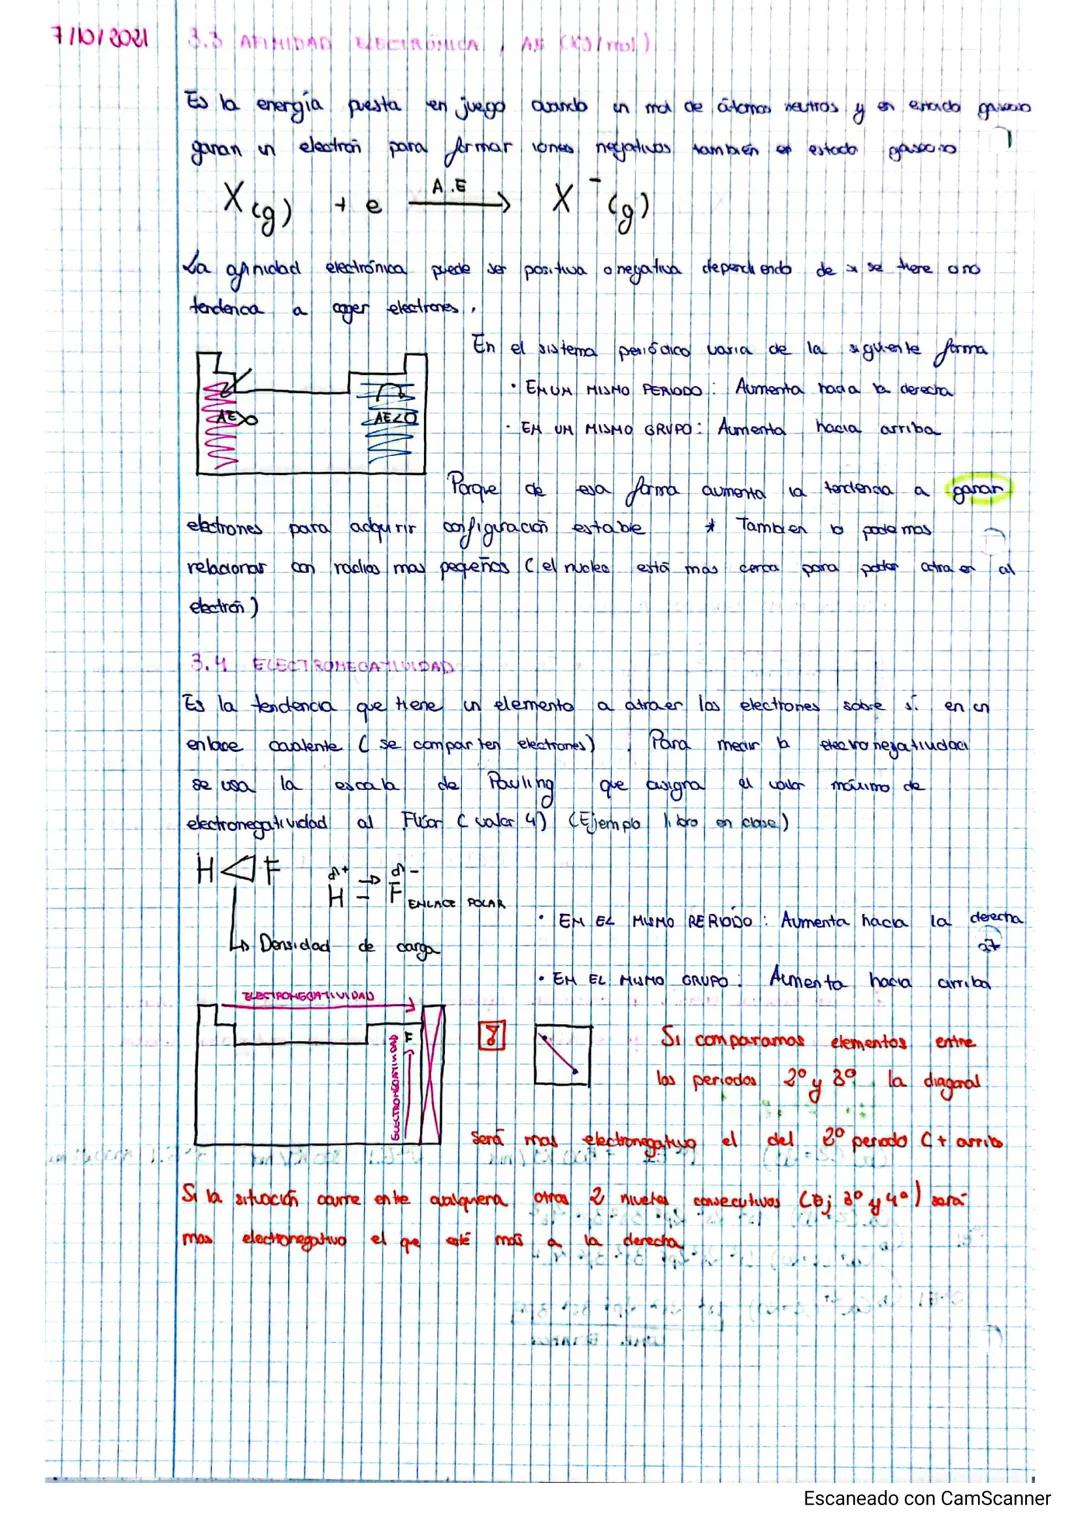 7/10/2021
3.3 AFINIDAD ELECTRÓNICA, AE (KJ/mol)
Es la energía puesta en juego cuando un mol de átomos neutros y en estado gaseoso
ganan un electrón para formar iones negativos también en estado gaseoso
X(g) + e A.E → X⁻(g)
La afinidad electrónica puede ser positiva o negativa dependiendo de si se tiene o no
tendencia a coger electrones.
En el sistema periódico varia de la siguiente forma
· EN UN MISMO PERIODO: Aumenta hacia la derecha
AE>0
AE<0
· EN UN MISMO GRUPO: Aumenta hacia arriba
Porque de esa forma aumenta la tendencia a ganar
electrones para adquirir configuración estable * Tambien lo podemos
relacionar con radios mas pequeños (el nucleo está más cerca para poder atraer al
electrón)
3.4 ELECTRONEGATIVIDAD
Es la tendencia que tiene un elemento a atraer los electrones sobre sí en un
enlace covalente (se comparten electrones). Para medir la electronegatividad
se usa la escala de Pauling que asigna el valor máximo de
electronegatividad al Flúor (valor 4) (Ejemplo libro en clase)
H F
δ+ → δ-
H - F ENLACE POLAR
Densidad de carga
· EN EL MISMO PERIODO: Aumenta hacia la derecha
17
· EN EL MISMO GRUPO: Aumenta hacia arriba
ELECTRONEGATIVIDAD
F
ELECTRONEGATIVIDAD
Si comparamos elementos entre
los periodos 2º y 3º, la diagonal
será mas electronegativo el del 2º periodo (+ arriba
Si la situación ocurre entre cualquiera otros 2 niveles consecutivos (Ej 3º y 4º) será
mas electronegativo el que esté más a la derecha
Escaneado con CamScanner